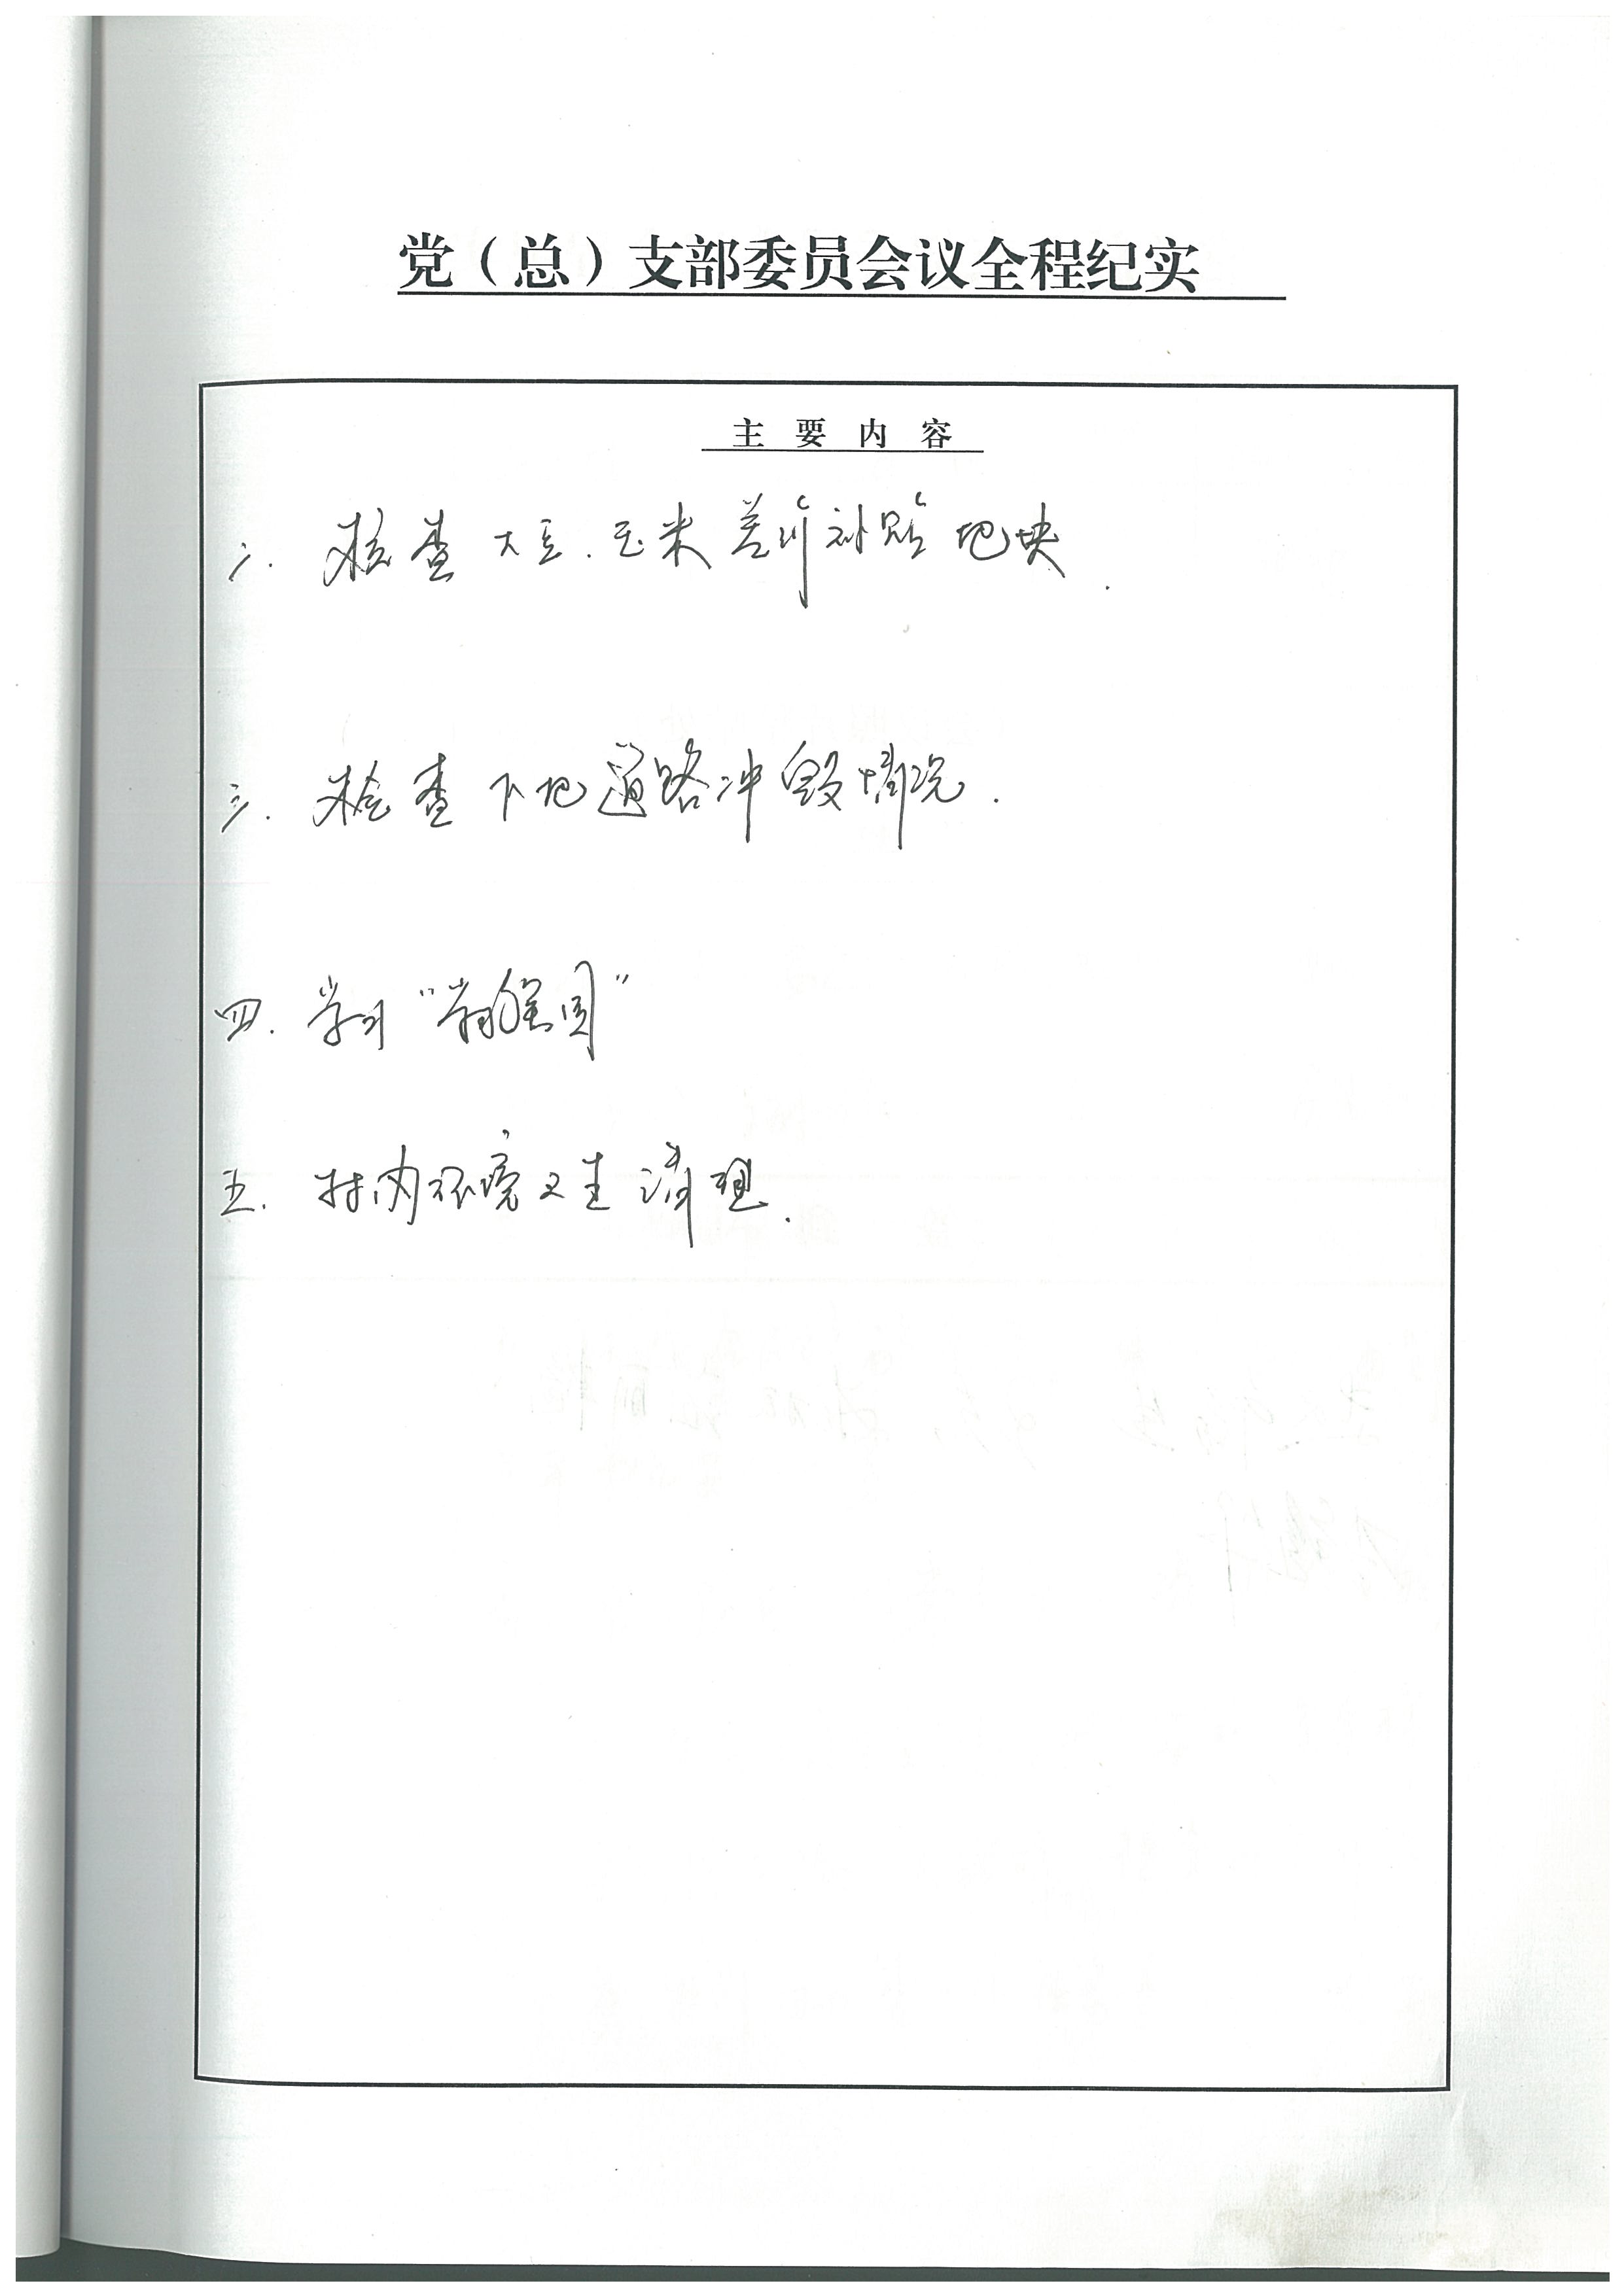 党（总）支部委员会议全程纪实
主要内容
二. 核查大豆.玉米差价补贴地块.
三. 检查下地道路冲毁情况.
四. 学习“学习强国”
五. 村内环境卫生清理.